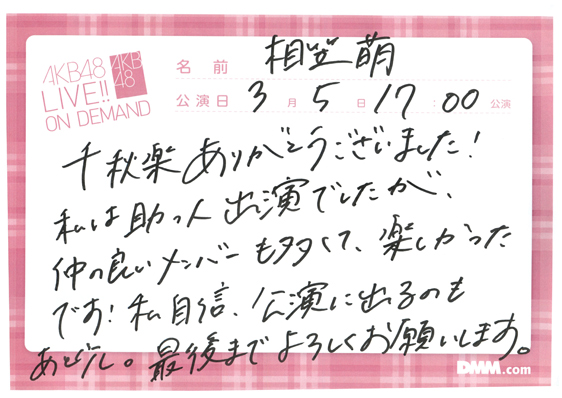 AKB48
LIVE!!
ON DEMAND
AKB
48
名前 相笠萌
公演日 3月5日 17:00公演
千秋楽ありがとうございました!
私は助っ人出演でしたが、
仲の良いメンバーも多くて、楽しかった
です!私自信、公演に出るのも
あと少し。最後までよろしくお願いします。
DMM.com